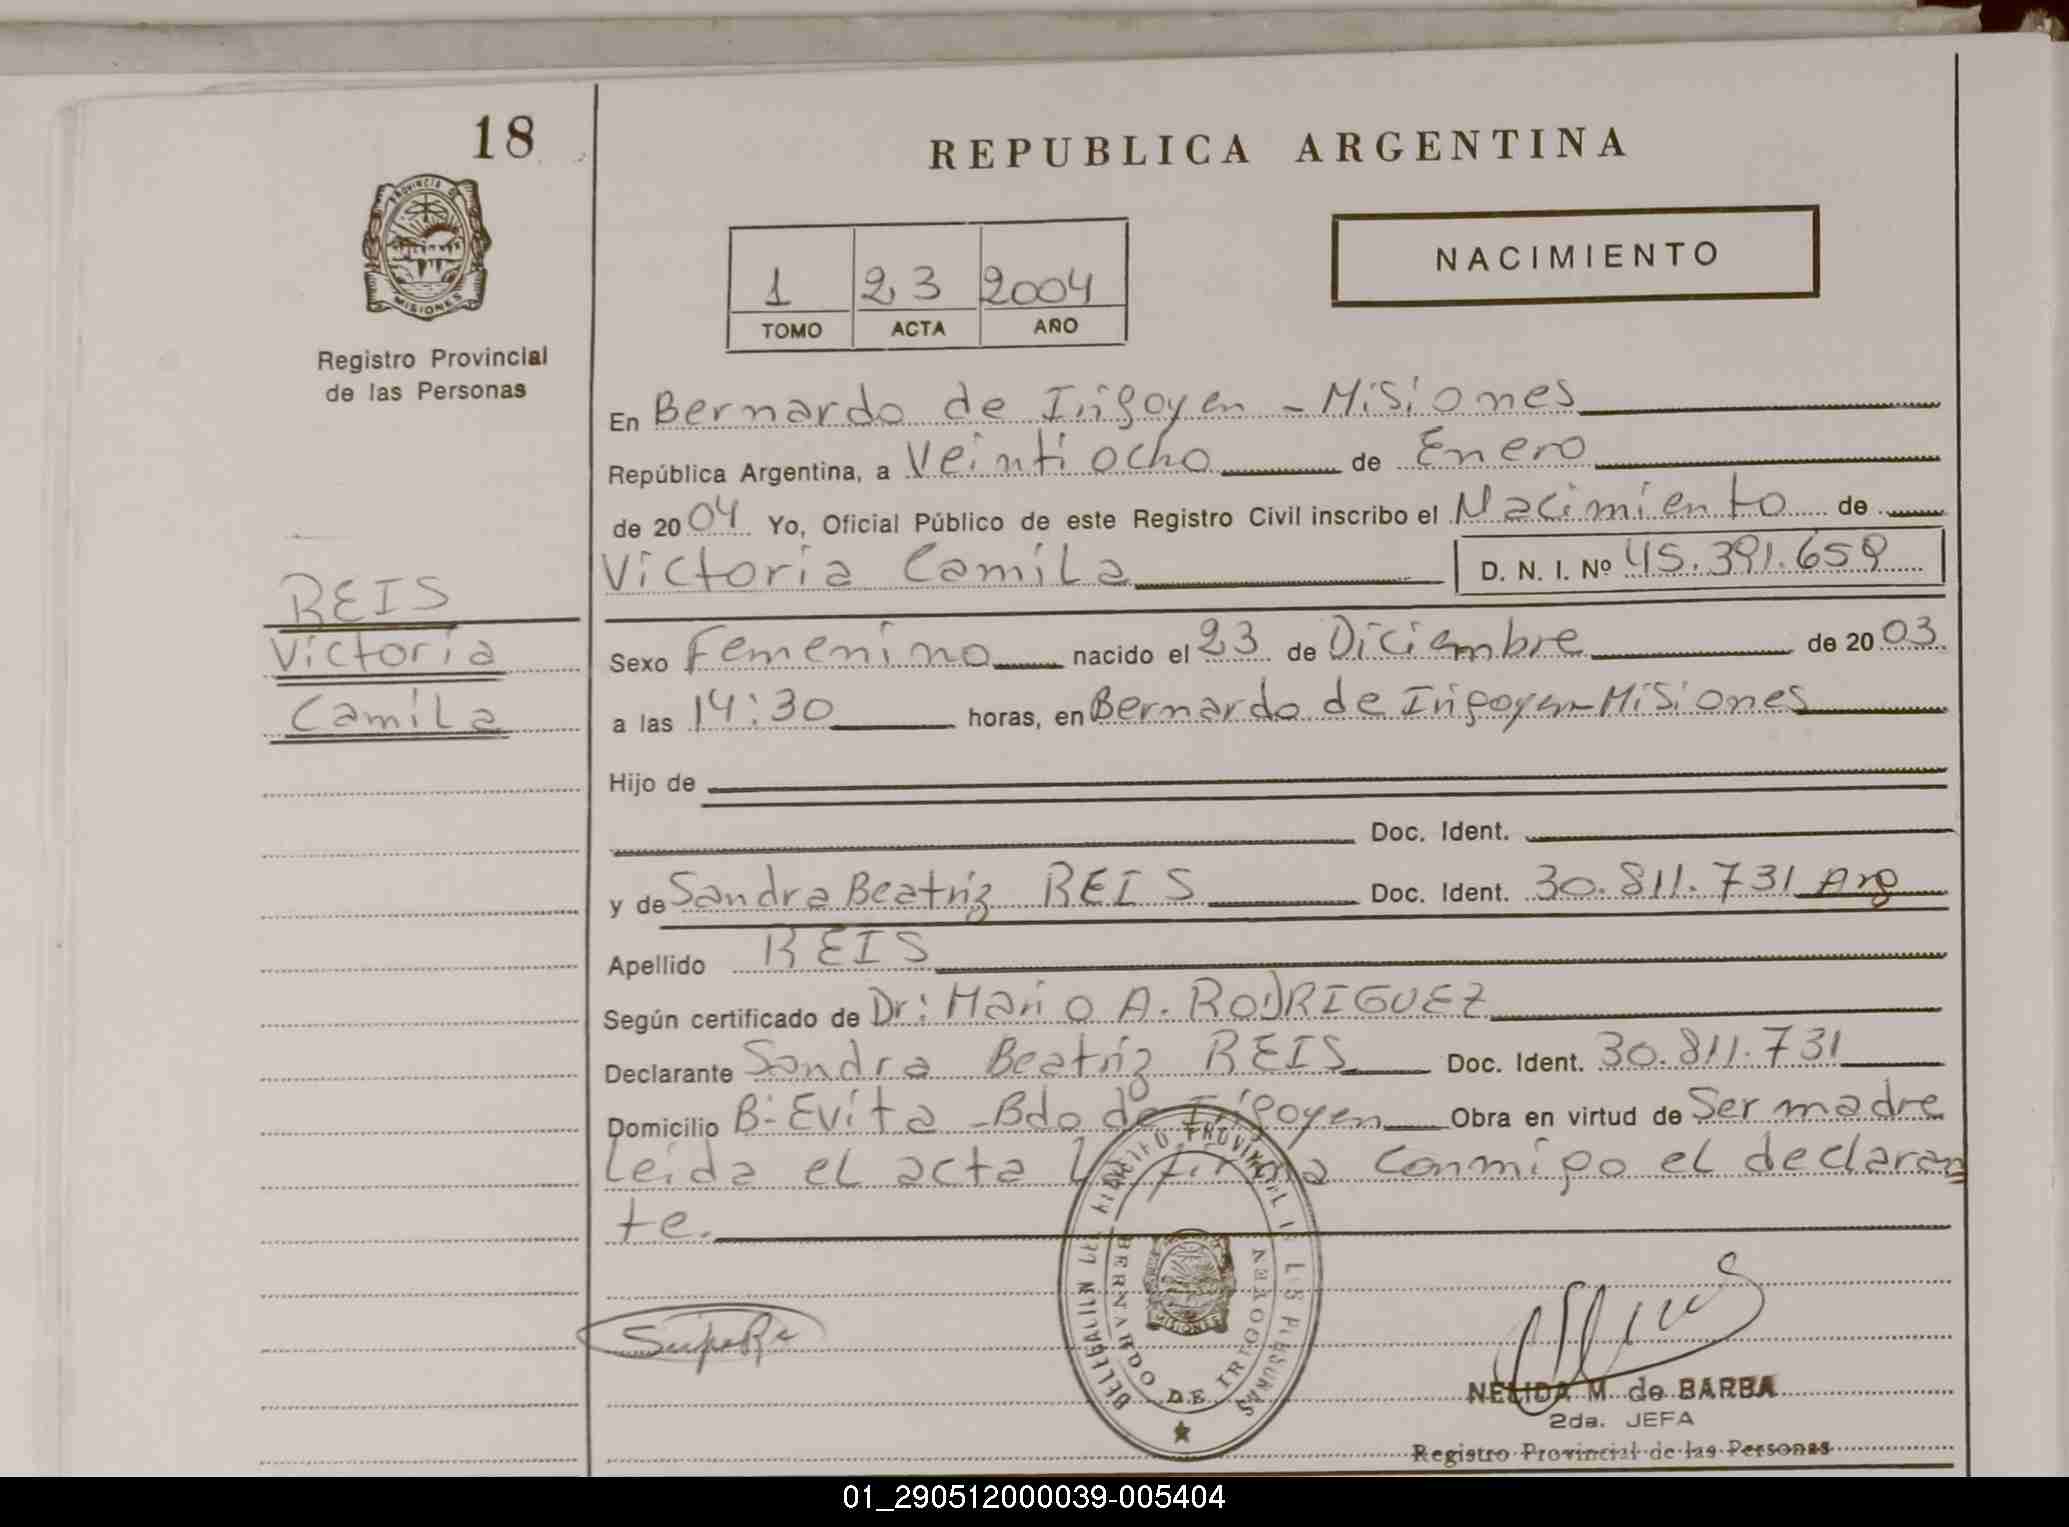 18
REPUBLICA ARGENTINA
PROVINCIA DE
MISIONES
NACIMIENTO
1 23 2004
TOMO ACTA AÑO
Registro Provincial
de las Personas
En Bernardo de Irigoyen - Misiones
República Argentina, a Veintiocho de Enero
de 2004 Yo, Oficial Público de este Registro Civil inscribo el Nacimiento de
Victoria Camila D. N. I. Nº 45.391.659
REIS
Victoria
Camila
Sexo Femenino nacido el 23 de Diciembre de 2003
a las 14:30 horas, en Bernardo de Irigoyen-Misiones
Hijo de
Doc. Ident.
y de Sandra Beatriz REIS Doc. Ident. 30.811.731 Arg
Apellido REIS
Según certificado de Dr: Mario A. RODRIGUEZ
Declarante Sandra Beatriz REIS Doc. Ident. 30.811.731
Domicilio B: Evita - Bdo de Irigoyen Obra en virtud de Ser madre
Leida el acta la firma conmigo el declaran
te.
BERNARDO DE IRIGOYEN
MISIONES
NELIDA M. de BARBA
2da. JEFA
Registro Provincial de las Personas
01_290512000039-005404